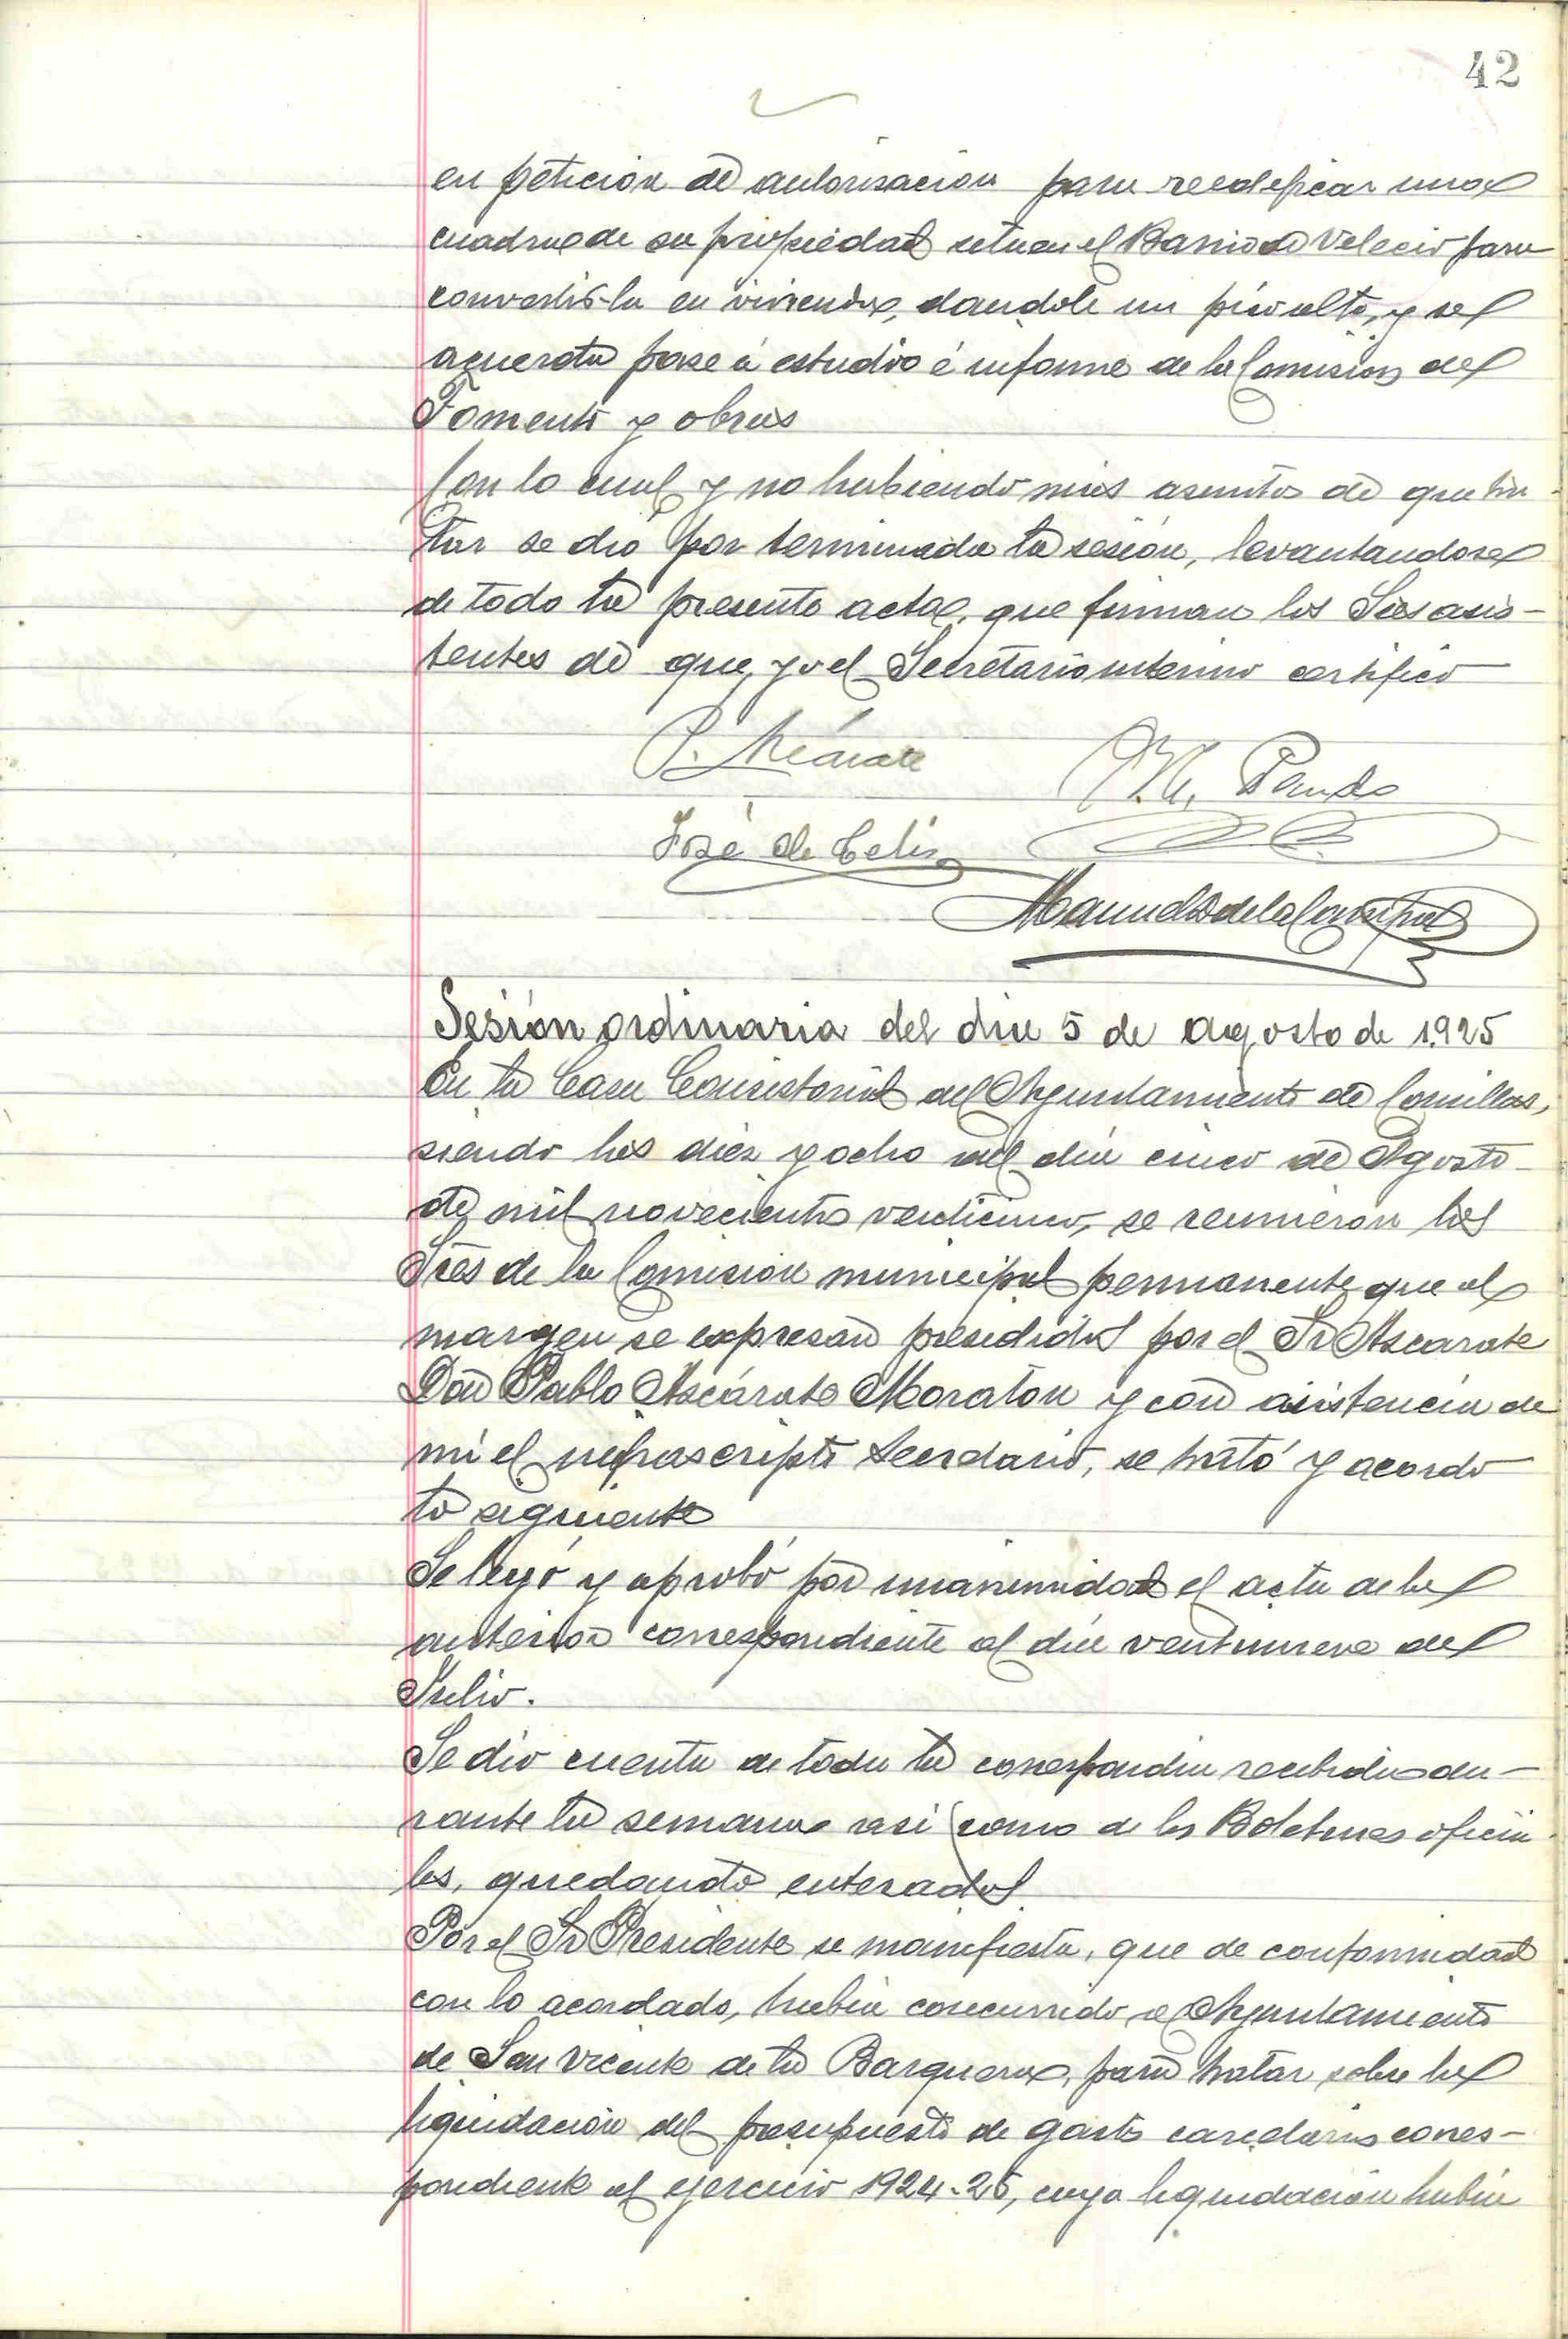 42
en petición de autorisación para reedificar una
cuadra de su propiedad sita en el Barrio de Velecio para
convertir-la en vivienda, dandole un piso alto, y se
acuerda pase á estudio é informe de la Comision de
Fomento y obras
Con lo cual y no habiendo más asuntos de que tra-
tar se dió por terminada la sesión, levantandose
de todo la presente acta, que firman los Sres asis-
tentes de que, yo el Secretario interino certifico
P. Azcárate
Pando
José de Celis
Manuel de la
Sesión ordinaria del dia 5 de agosto de 1.925
En la Casa Consistorial del Ayuntamiento de Comillas,
siendo las diez y ocho del día cinco de Agosto
de mil novecientos venticinco, se reunieron los
Sres de la Comision municipal permanente que al
margen se expresan presididos por el Sr Azcarate
Don Pablo Azcárate Moraton y con asistencia de
mi el infrascripto Secretario, se trató y acordo
lo siguiente
Se leyó y aprobó por unanimidad el acta de la
anterior correspondiente al día ventinueve de
Julio.
Se dio cuenta de toda la correspondia recibida du-
rante la semana asi como de los Boletines oficia-
les, quedando enterados
Por el Sr Presidente se manifiesta, que de conformidad
con lo acordado, habia concurrido al Ayuntamiento
de San Vicente de la Barquera, para tratar sobre la
liquidación del presupuesto de gastos carcelarios corres-
pondiente al ejercicio 1924-25, cuya liquidacion habia